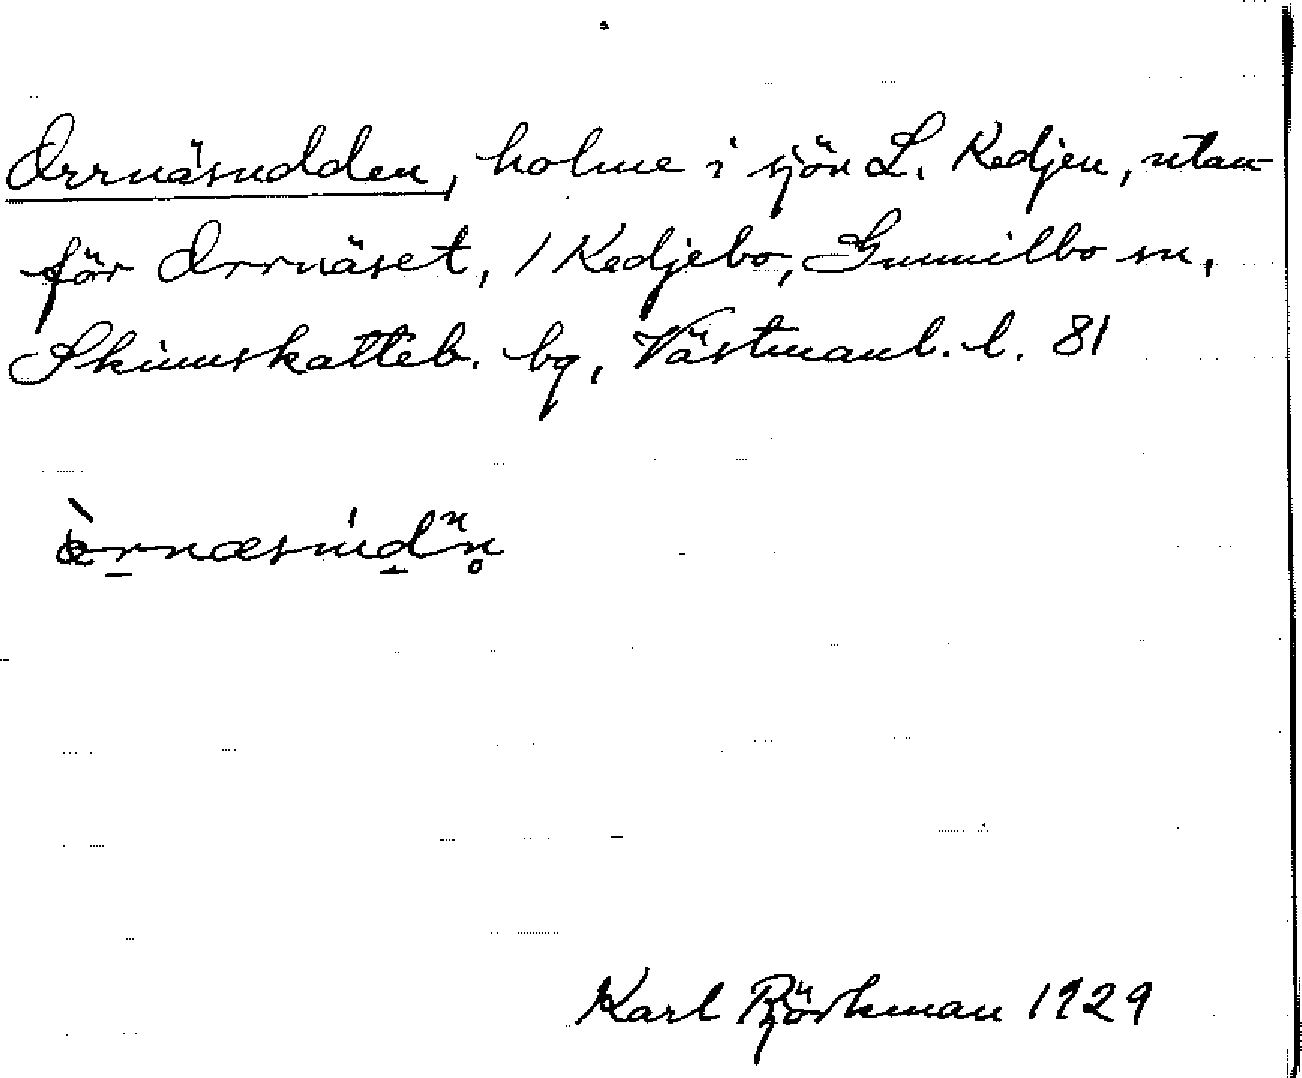 Orrnäsudden, holme i sjön L. Kedjen, utan-
för Orrnäset, 1 Kedjebo, Gunnilbo sn,
Skinnskatteb. bg, Västmanl. l. 81
Karl Björkman 1929